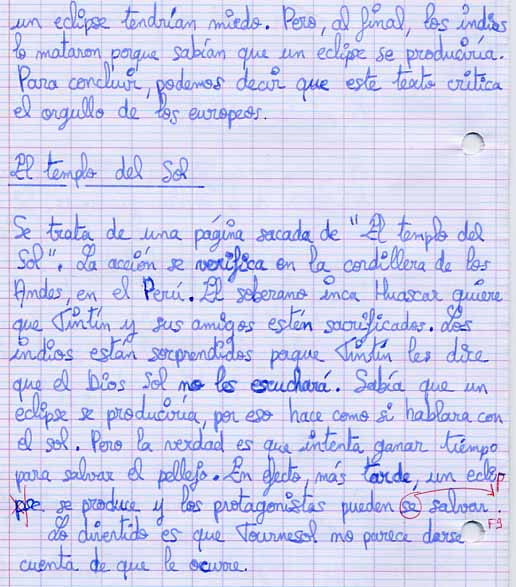 un eclipse tendrían miedo. Pero, al final, los indios
lo mataron porque sabían que un eclipse se produciría.
Para concluir, podemos decir que este texto critica
el orgullo de los europeos.
El templo del Sol
Se trata de una página sacada de "El templo del
Sol". La acción se verifica en la cordillera de los
Andes, en el Perú. El soberano inca Huascar quiere
que Tintín y sus amigos estén sacrificados. Los
indios están sorprendidos porque Tintín les dice
que el Dios Sol no les escuchará. Sabía que un
eclipse se produciría, por eso hace como si hablara con
el sol. Pero la verdad es que intenta ganar tiempo
para salvar el pellejo. En efecto, más tarde, un eclip
se se produce y los protagonistas pueden se salvar.
Lo divertido es que Tournesol no parece darse F9
cuenta de que le ocurre.